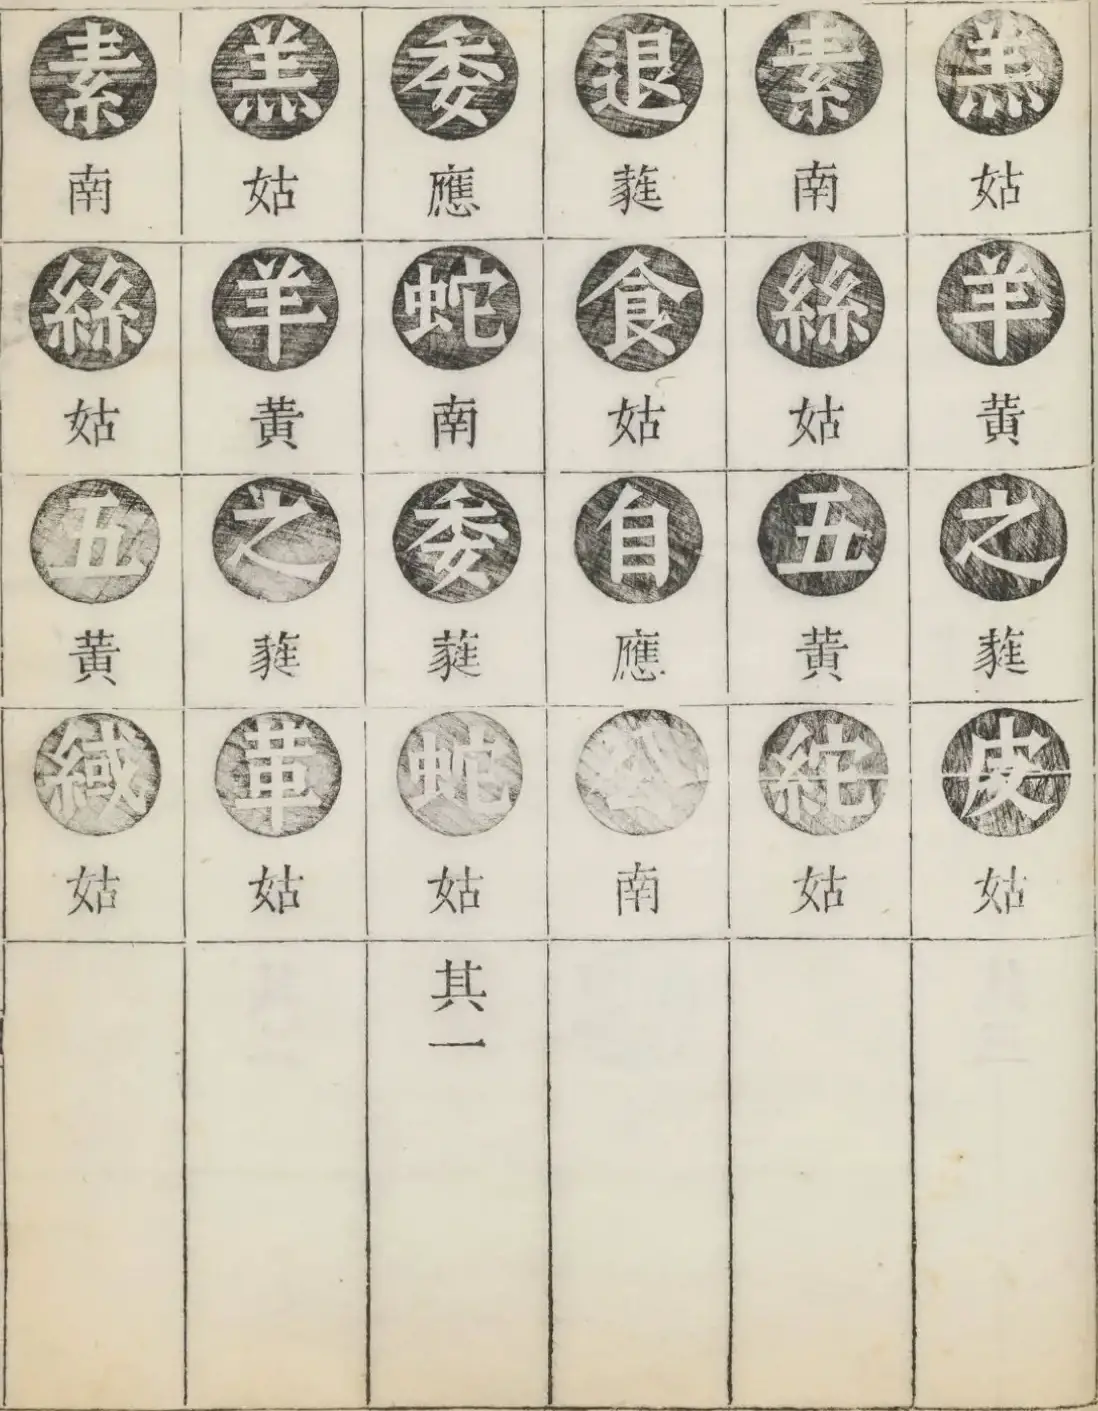 羔姑羊黄之蕤皮姑
素南絲姑五黄紽姑
退蕤食姑自應公南
委應蛇南委蕤蛇姑其一
羔姑羊黄之蕤革姑
素南絲姑五黄緎姑